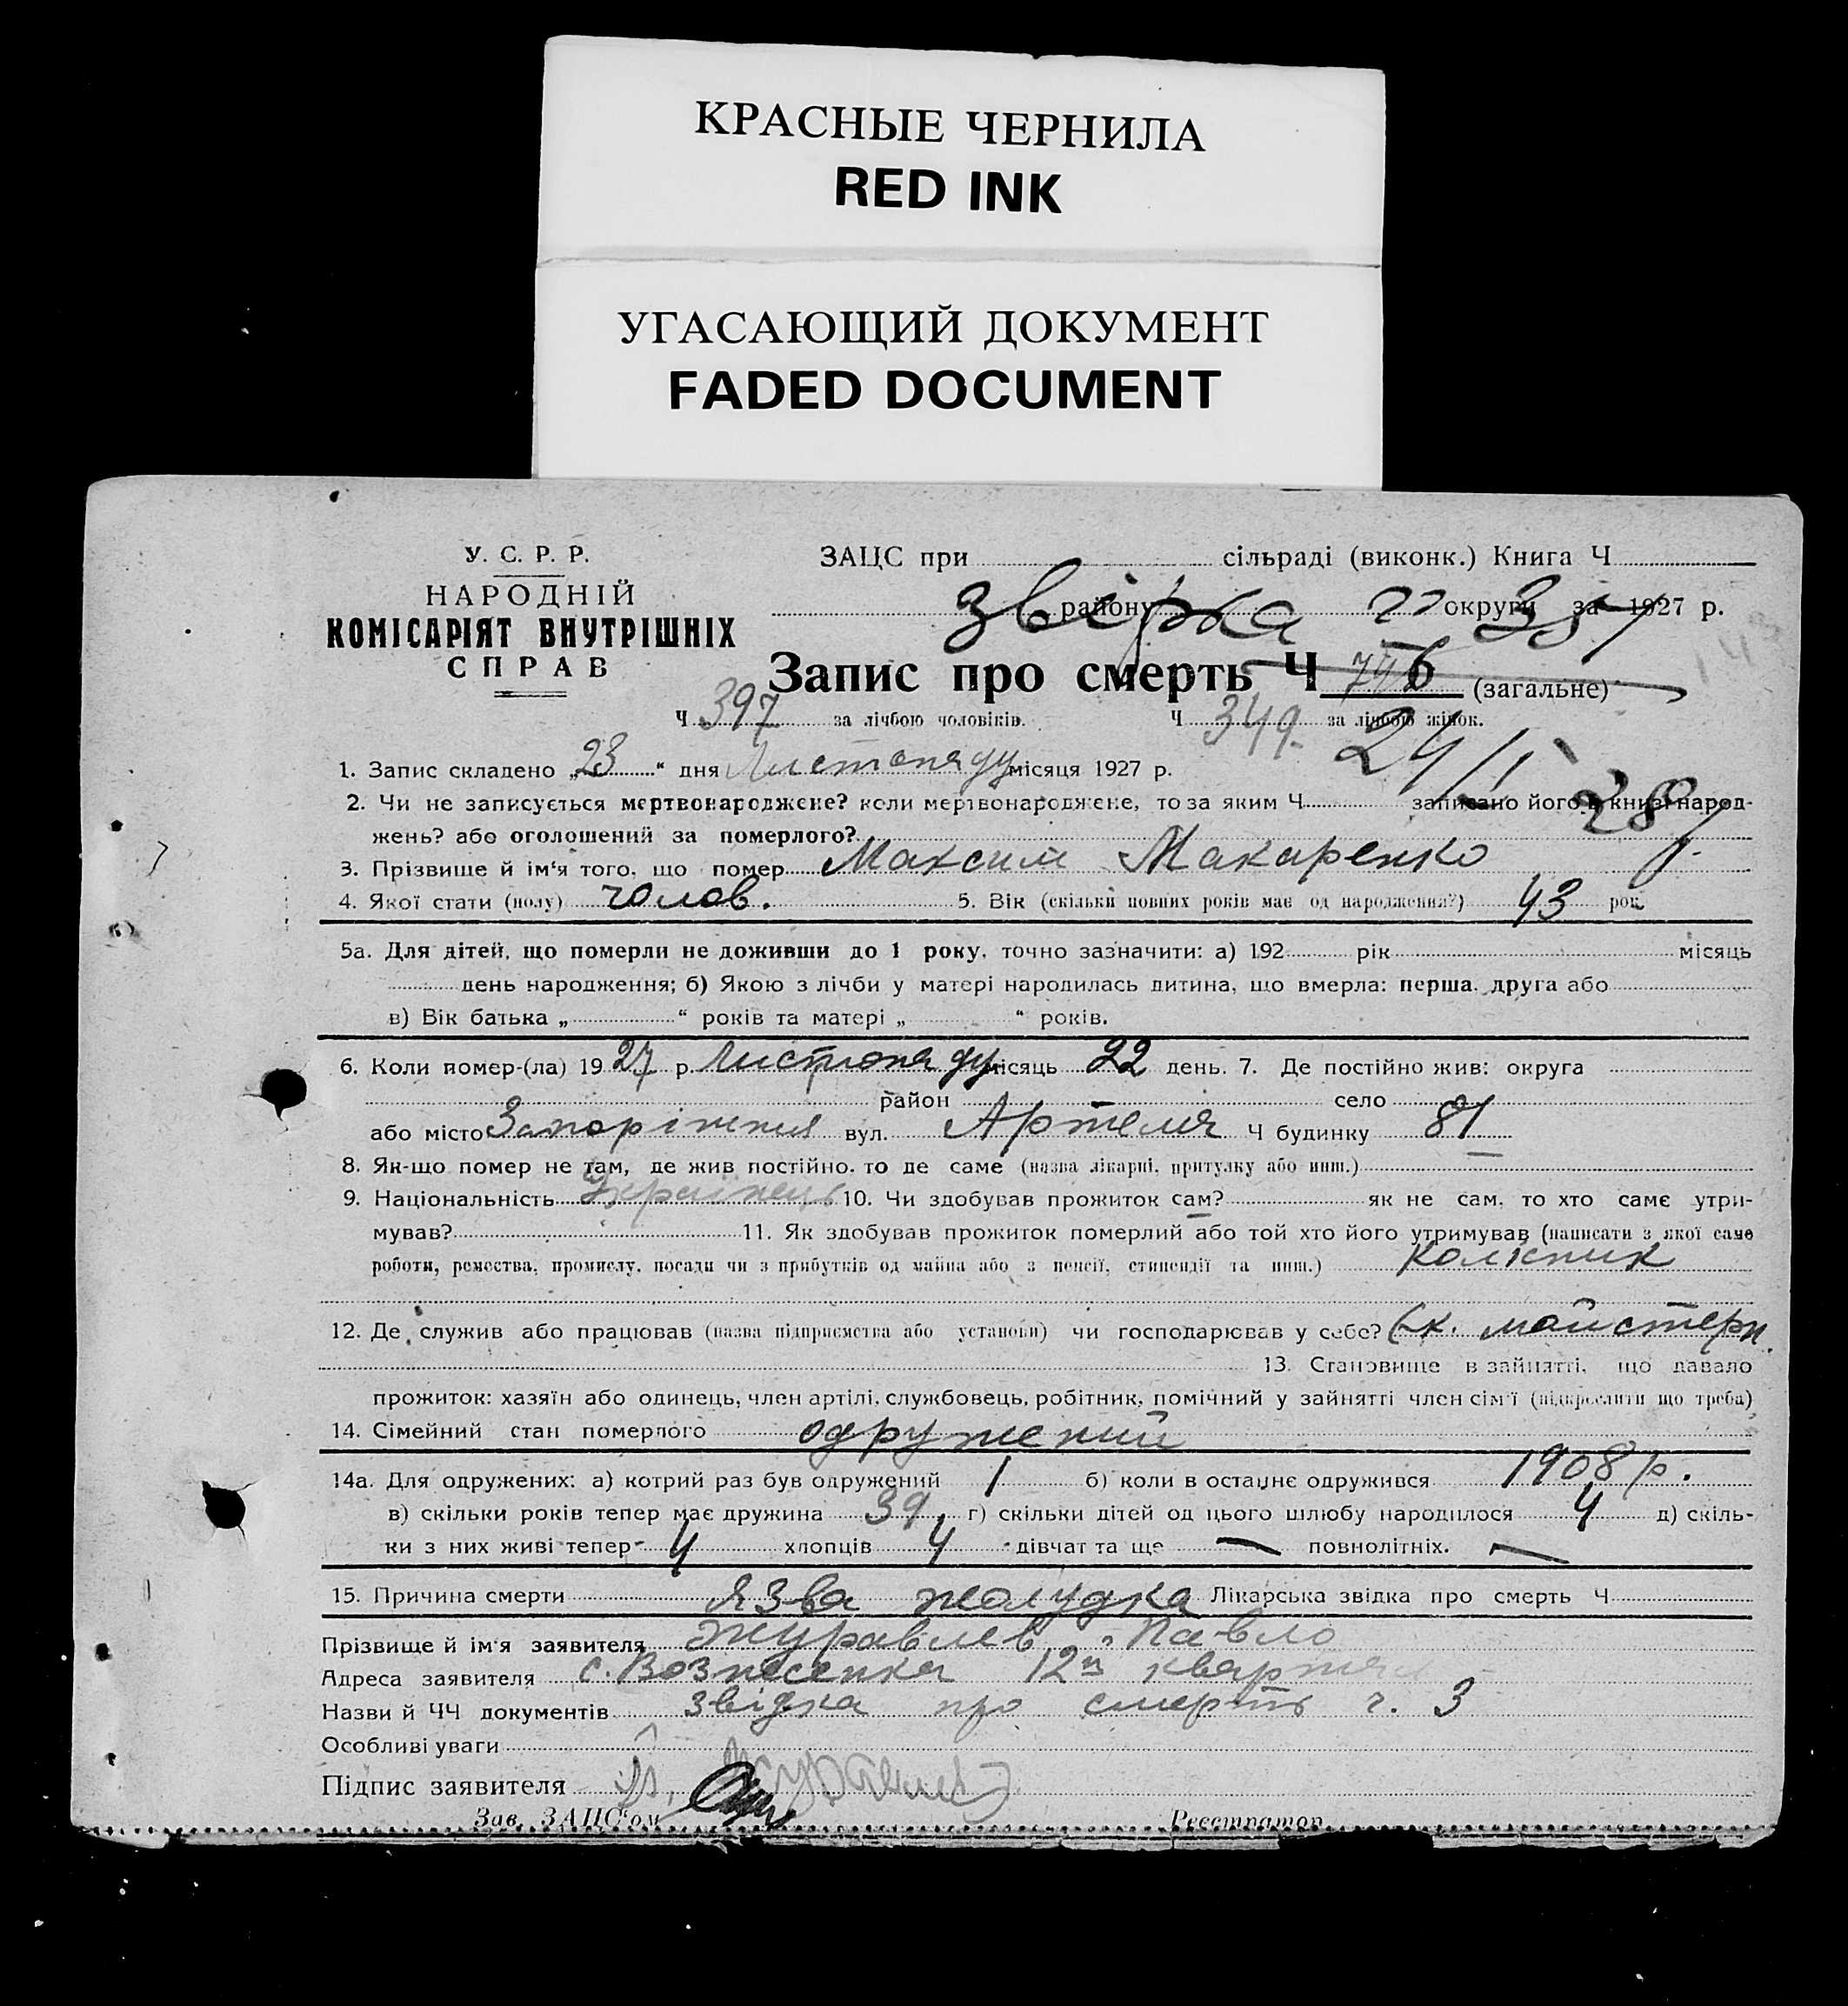 КРАСНЫЕ ЧЕРНИЛА
RED INK
УГАСАЮЩИЙ ДОКУМЕНТ
FADED DOCUMENT
У. С. Р. Р.
НАРОДНІЙ
КОМІСАРІЯТ ВНУТРІШНІХ
СПРАВ
ЗАЦС при сільраді (виконк.) Книга Ч
району округи за 1927 р.
Запис про смерть Ч 746 (загальне)
Ч 397 за лічбою чоловіків. Ч 349. за лічбою жінок.
24/I
28
1. Запис складено „23“ дня Листопаду місяця 1927 р.
2. Чи не записується мертвонароджене? коли мертвонароджене, то за яким Ч записано його в книзі народ-
жень? або оголошений за померлого?
3. Прізвище й ім‘я того, що помер Максим Макаренко
4. Якої стати (полу) чолов. 5. Вік (скільки повних років має од народження?) 43 рок
5а. Для дітей, що померли не доживши до 1 року, точно зазначити: а) 192 рік місяць
день народження; б) Якою з лічби у матері народилась дитина, що вмерла: перша, друга або
в) Вік батька „ “ років та матері „ “ років.
6. Коли помер-(ла) 1927 р. Листопаду місяць 22 день. 7. Де постійно жив: округа
район село
або місто Запоріжжя вул. Артема Ч будинку 81
8. Як-що помер не там, де жив постійно, то де саме (назва лікарні, притулку або инш.)
9. Національність Українець 10. Чи здобував прожиток сам? як не сам, то хто саме утри-
мував? 11. Як здобував прожиток померлий або той хто його утримував (написати з якої саме
роботи, ремества, промислу, посади чи з прибутків од майна або з пенсії, стипендії та инш.) колісник
12. Де служив або працював (назва підприємства або установи) чи господарював у себе? майстерн.
13. Становище в зайнятті, що давало
прожиток: хазяїн або одинець, член артілі, службовець, робітник, помічний у зайнятті член сім‘ї (підкреслити що треба)
14. Сімейний стан померлого одружений
14а. Для одружених: а) котрий раз був одружений 1 б) коли в останнє одружився 1908 р.
в) скільки років тепер має дружина 39, г) скільки дітей од цього шлюбу народилося 4 д) скіль-
ки з них живі тепер 4 хлопців 4 дівчат та ще — повнолітніх. —
15. Причина смерти язва желудка Лікарська звідка про смерть Ч
Прізвище й ім‘я заявителя Журавлев Павло
Адреса заявителя с. Вознесенка 12й квартал
Назви й ЧЧ документів звідка про смерть ч. 3
Особливі уваги
Підпис заявителя
Зав. ЗАЦС‘ом Реєстратор